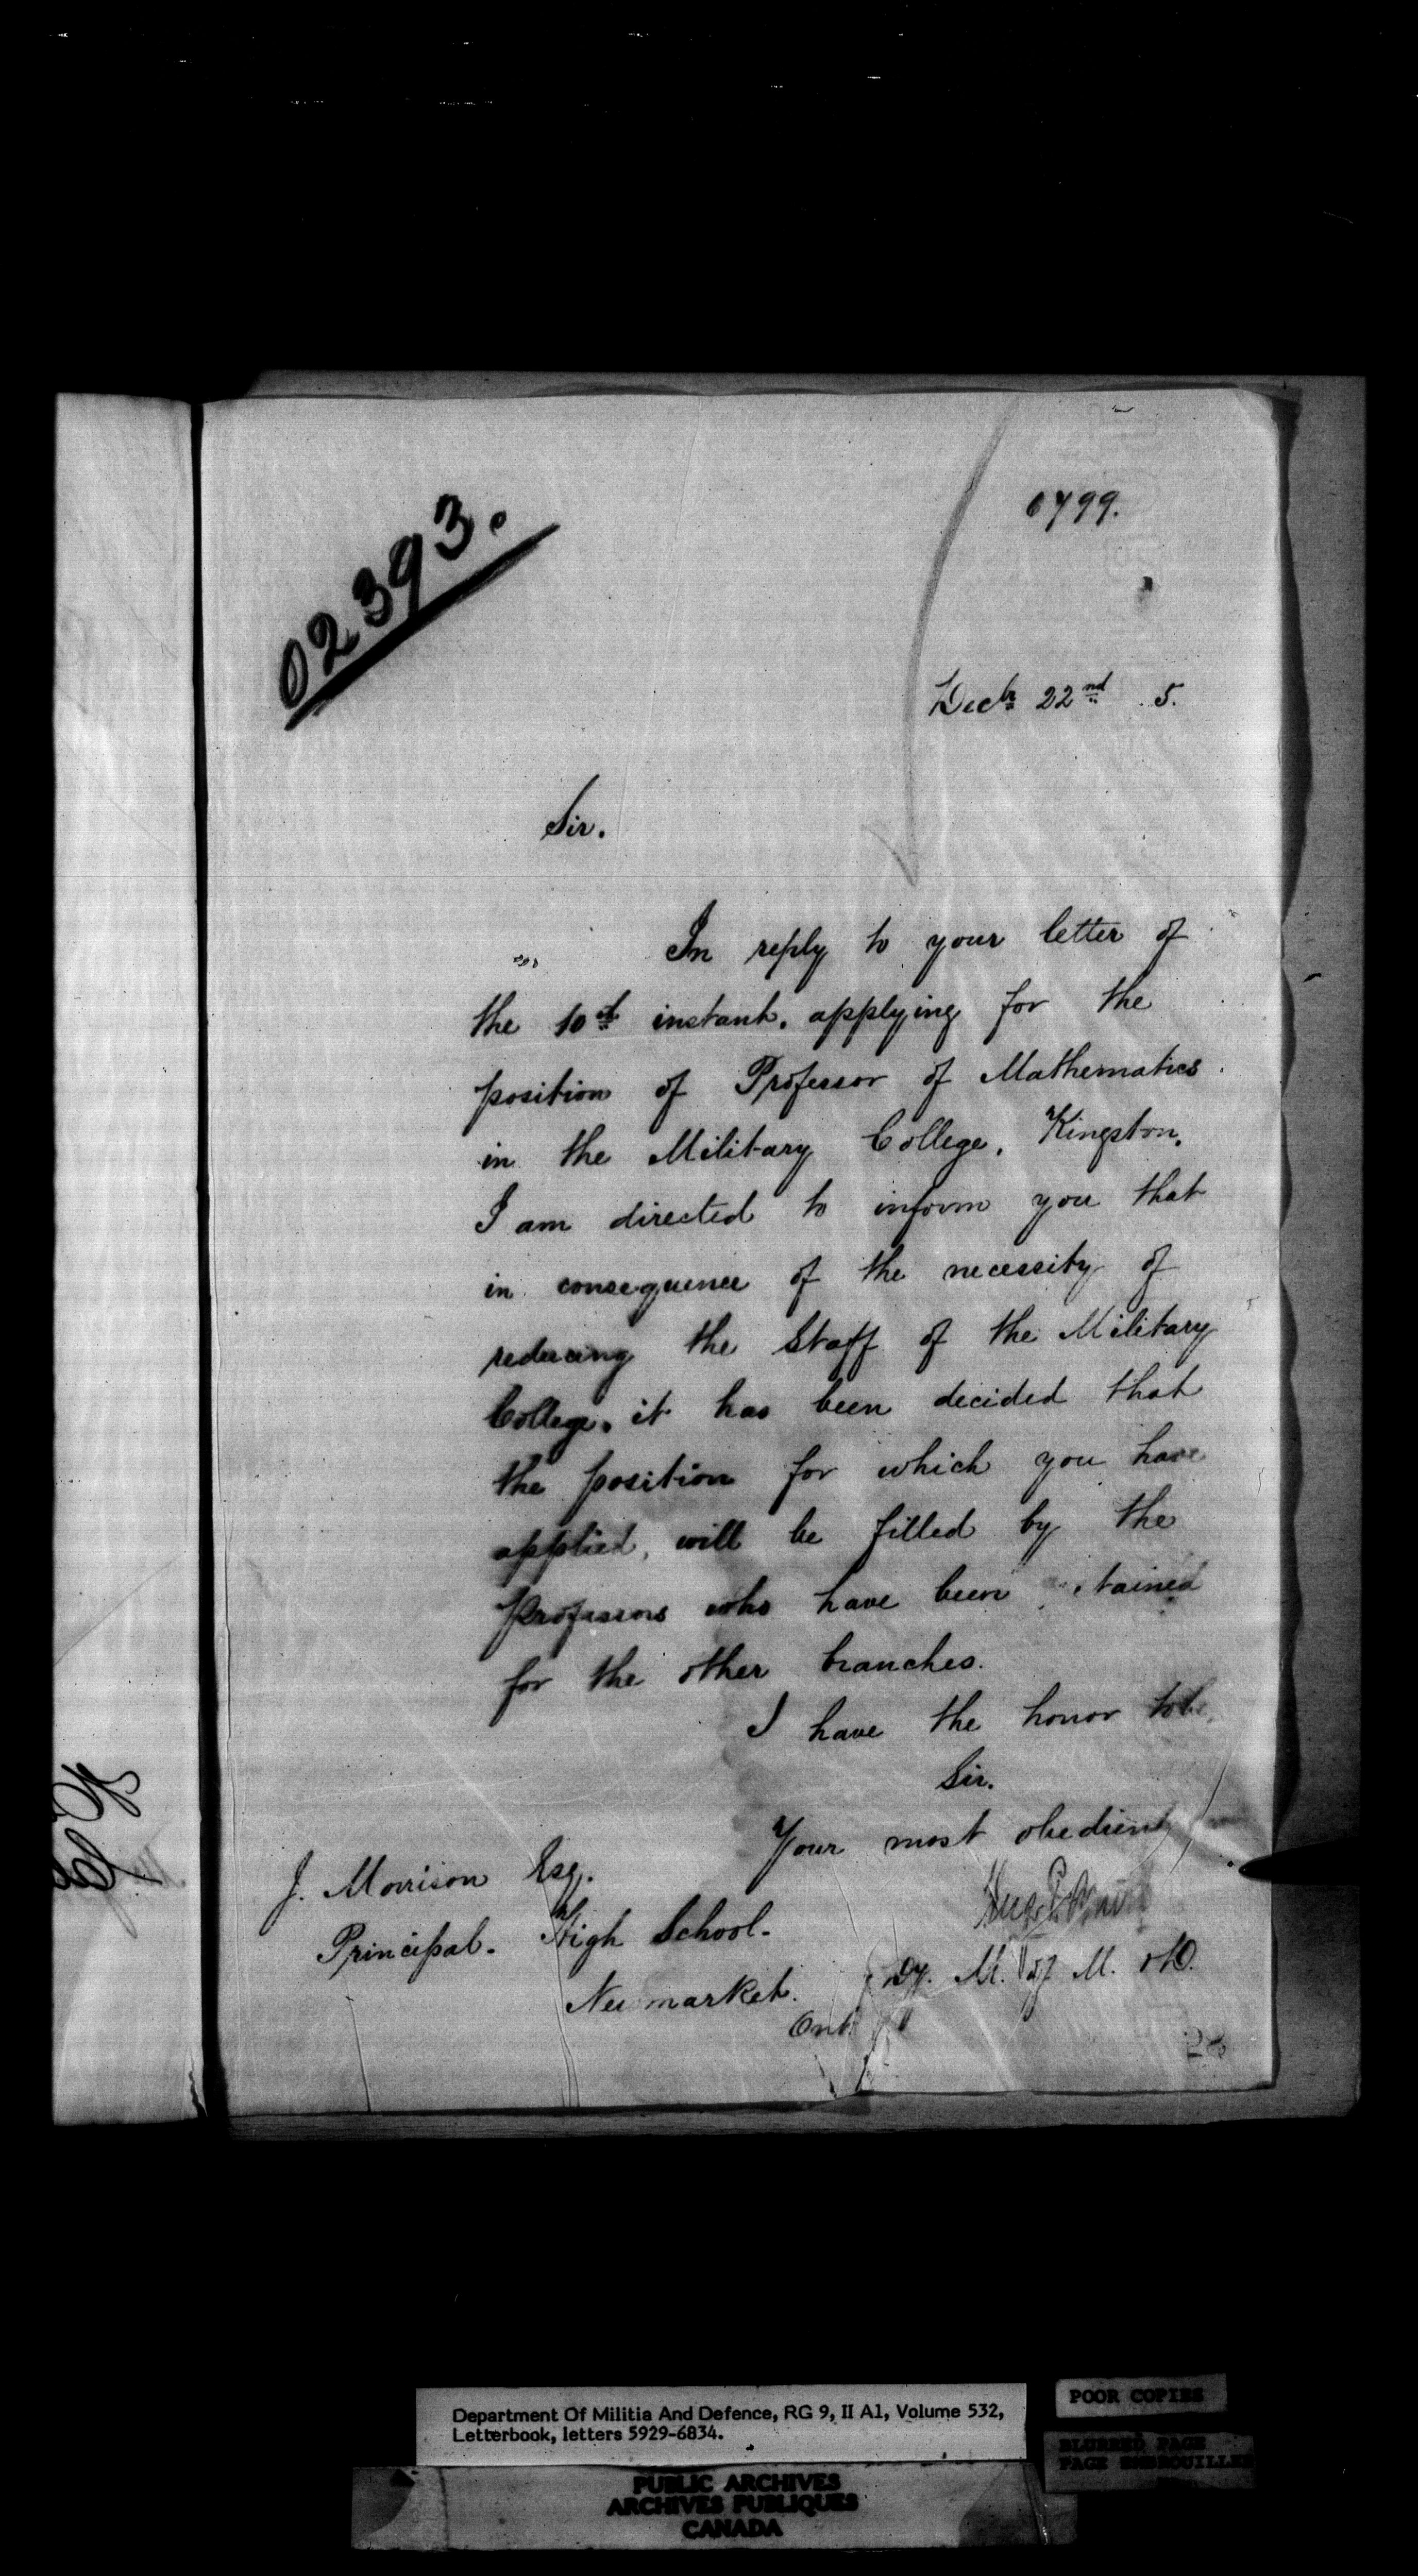 02393.
6799.
Decbr 22nd 5.
Sir.
In reply to your letter of
the 10th instant, applying for the
position of Professor of Mathematics
in the Military College, Kingston,
I am directed to inform you that
in consequence of the necessity of
reducing the Staff of the Military
College, it has been decided that
the position for which you have
applied, will be filled by the
Professors who have been tained
for the other branches.
I have the honor to be,
Sir.
Your most obedient
J. Morrison Esq.
Principal. High School.
Newmarket.
Ont.
Dy. M. of M. & D.
28
Department Of Militia And Defence, RG 9, II A1, Volume 532,
Letterbook, letters 5929-6834.
POOR COPIES
BLURRED PAGE
PAGE EMBROUILLEE
PUBLIC ARCHIVES
ARCHIVES PUBLIQUES
CANADA